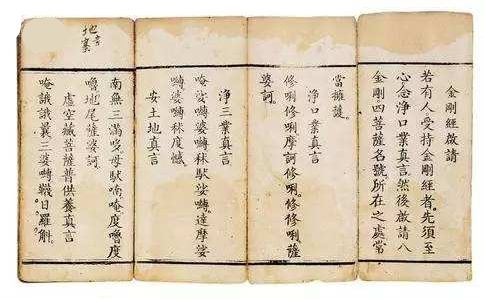 金剛經啟請
若有人受持金剛經者。先須至
心念淨口業真言。然後啟請八
金剛四菩薩名號所在之處常
當擁護。
淨口業真言
修唎修唎摩訶修唎。修修唎薩
婆訶。
淨三業真言
唵娑嚩婆嚩秫馱娑嚩。達摩娑
嚩婆嚩秫度憾
安土地真言
南無三滿哆母馱喃唵度嚕度
嚕地尾薩婆訶
虛空藏菩薩普供養真言
唵誐誐曩三婆嚩韈日羅斛